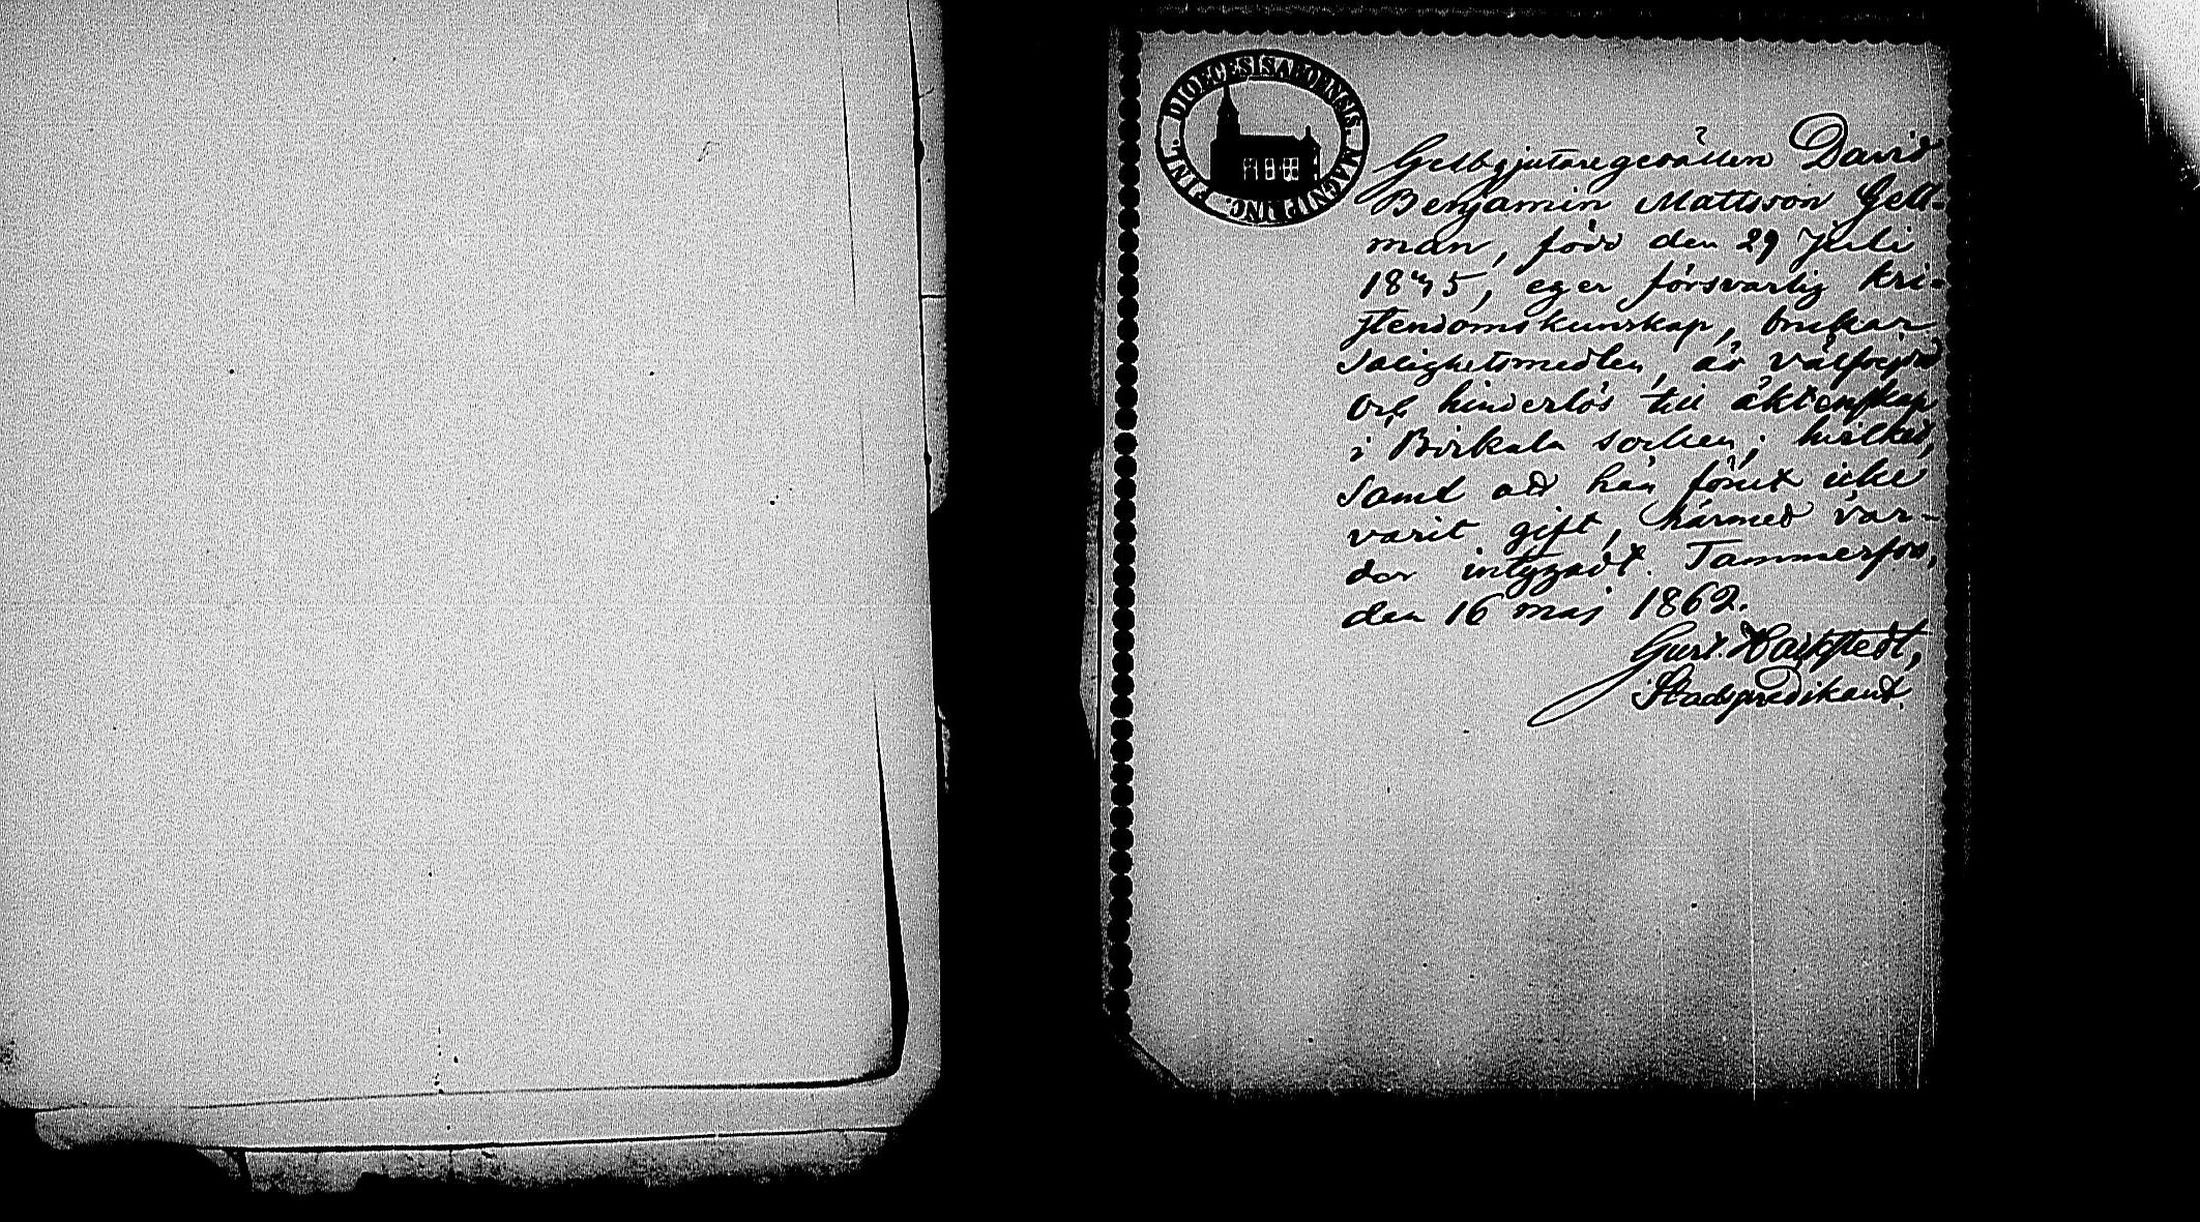 DIOECESIS ABOENSIS. MAGNI PRINC. FINL.
Gelbgjutaregesällen David
Benjamin Mattsson Gell-
man, född den 29 Juli
1835, eger försvarlig kri-
stendomskunskap, brukar
salighetsmedlen, är välfrejdad
och hinderlös till äktenskap
i Birkala socken; hvilket,
samt att han förut icke
varit gift, härmed var-
der intygadt. Tammerfors,
den 16 maj 1862.
Gust.
Stadspredikant.